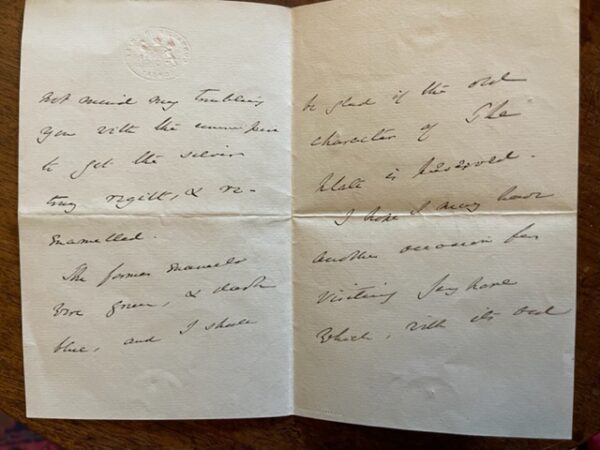 not mind my troubling
you with the
to get the silver
tray regilt, & re-
enamelled.
The former enamels
were green, & dark
blue, and I should
be glad if the old
character of the
plate is preserved.
I hope I may have
another occasion for
visiting
which, with its old